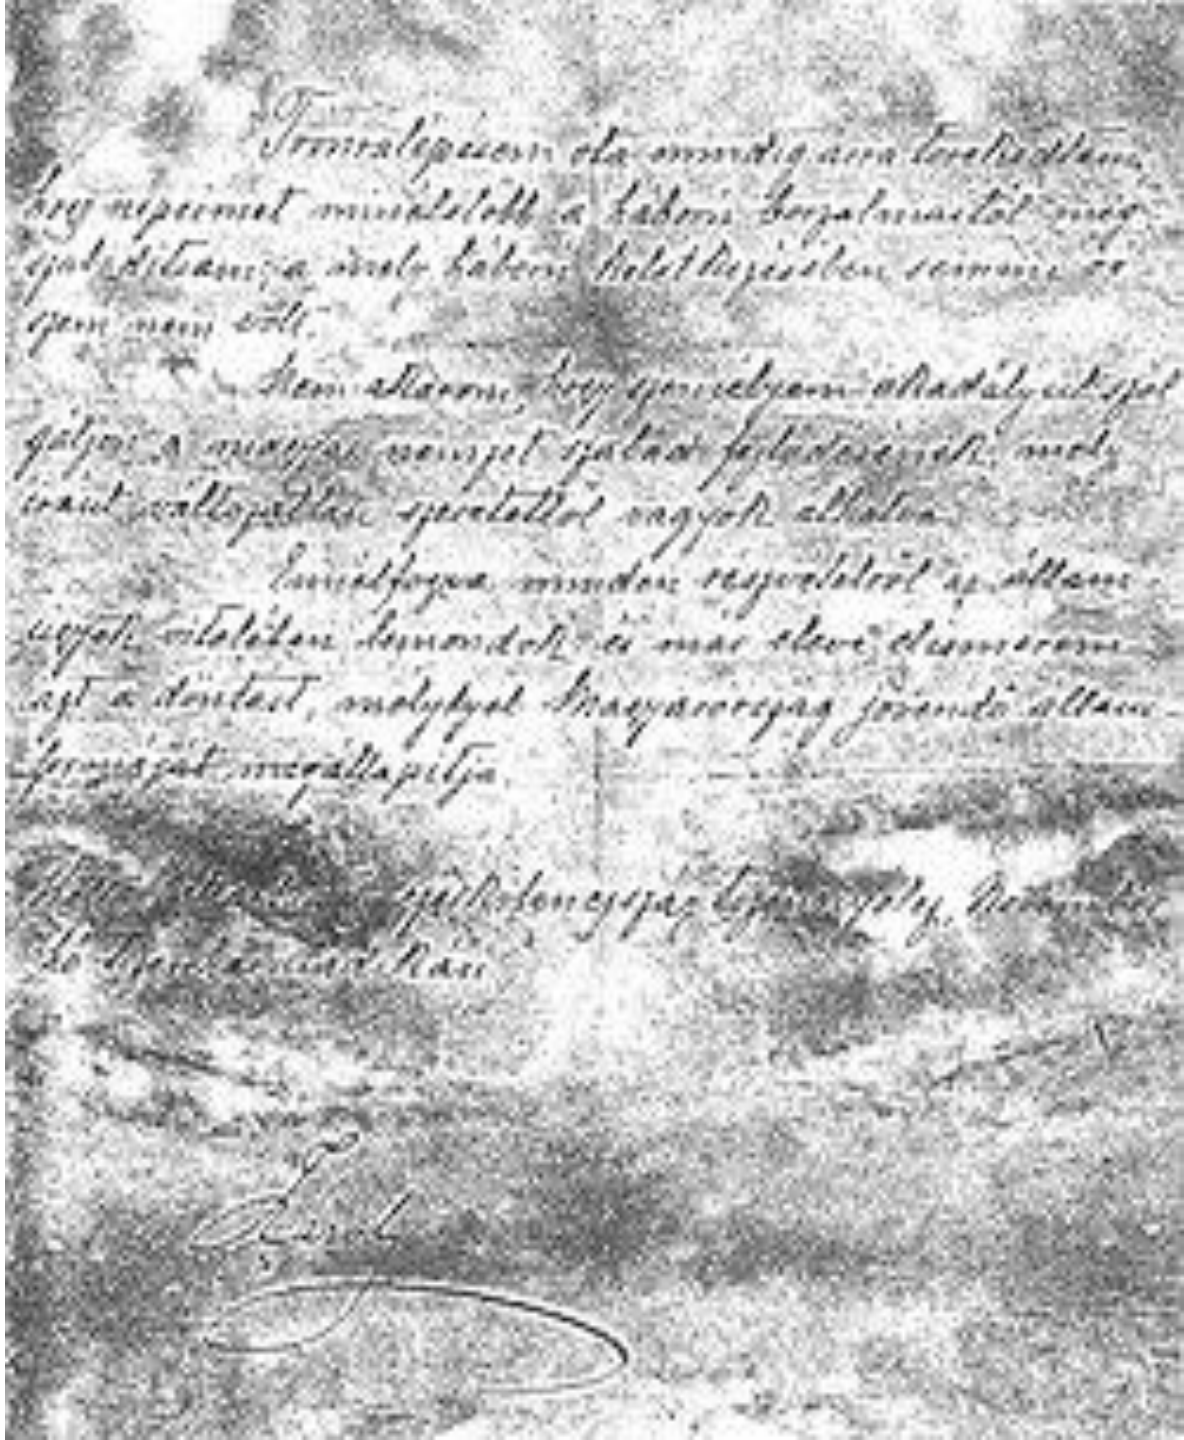 Trónralépésem óta mindig arra törekedtem,
hogy népeimet minélelőbb a háború borzalmaitól meg-
szabadítsam, a mely háború keletkezésében semmi ré-
szem nem volt.
Nem akarom, hogy személyem akadályul szol-
gáljon a magyar nemzet szabad fejlődésének, mely
iránt változatlan szeretettől vagyok áthatva.
Ennélfogva minden részvételről az állam-
ügyek vitelében lemondok és már eleve elismerem
azt a döntést, mely Magyarország jövendő állam-
formáját megállapítja.
Kelt November
Károly